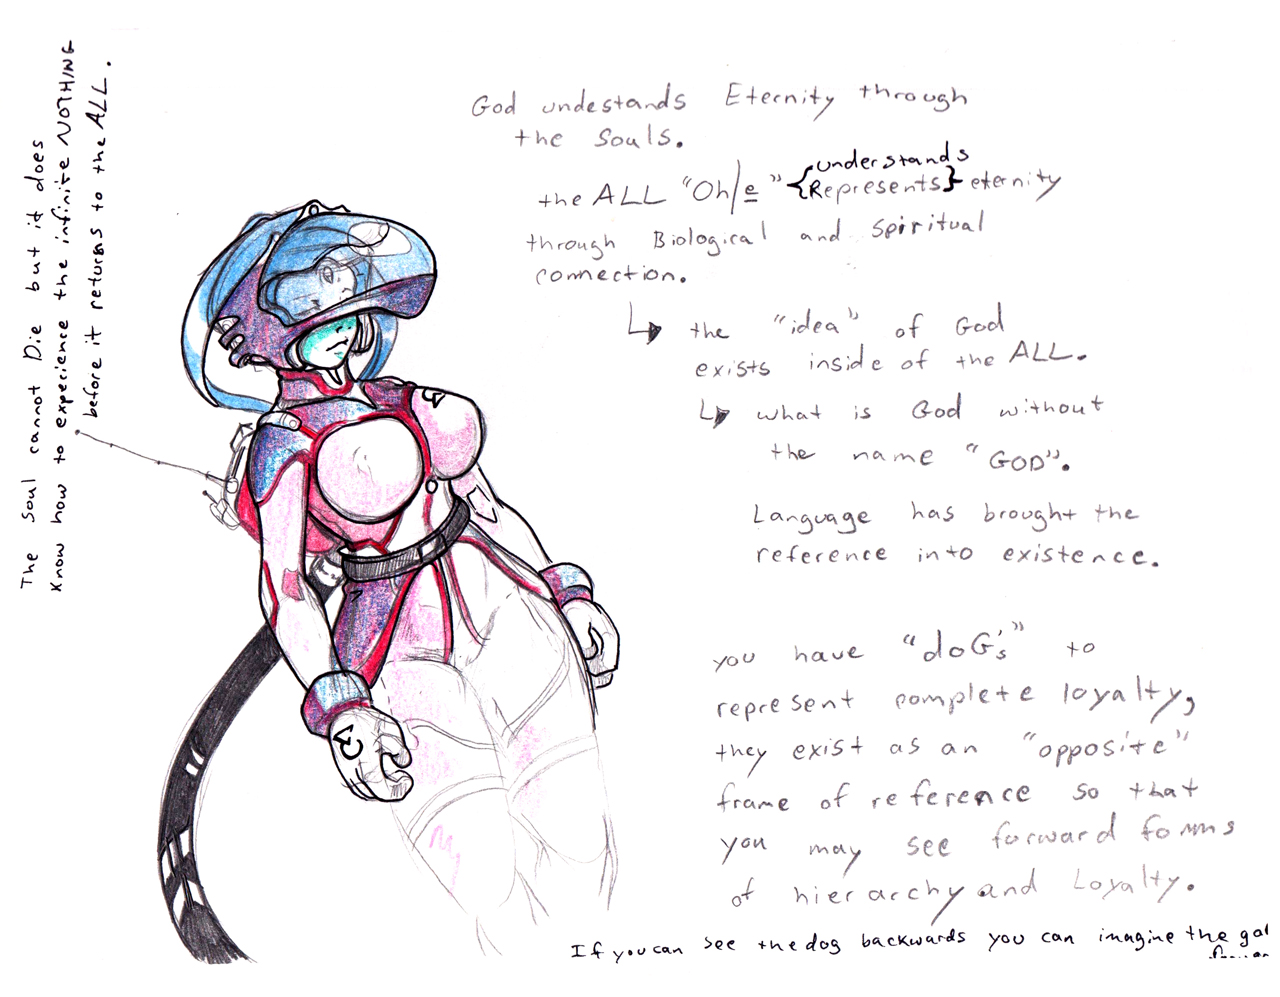 The Soul cannot Die but it does
Know how to experience the infinite NOTHING
before it returns to the ALL.
God undestands Eternity through
the Souls.
the ALL "Oh/e" {understands
Represents} eternity
through Biological and Spiritual
connection.
the "idea" of God
exists inside of the ALL.
what is God without
the name "GOD".
Language has brought the
reference into existence.
you have "doG's" to
represent complete loyalty,
they exist as an "opposite"
frame of reference so that
you may see forward forms
of hierarchy and Loyalty.
If you can see the dog backwards you can imagine the